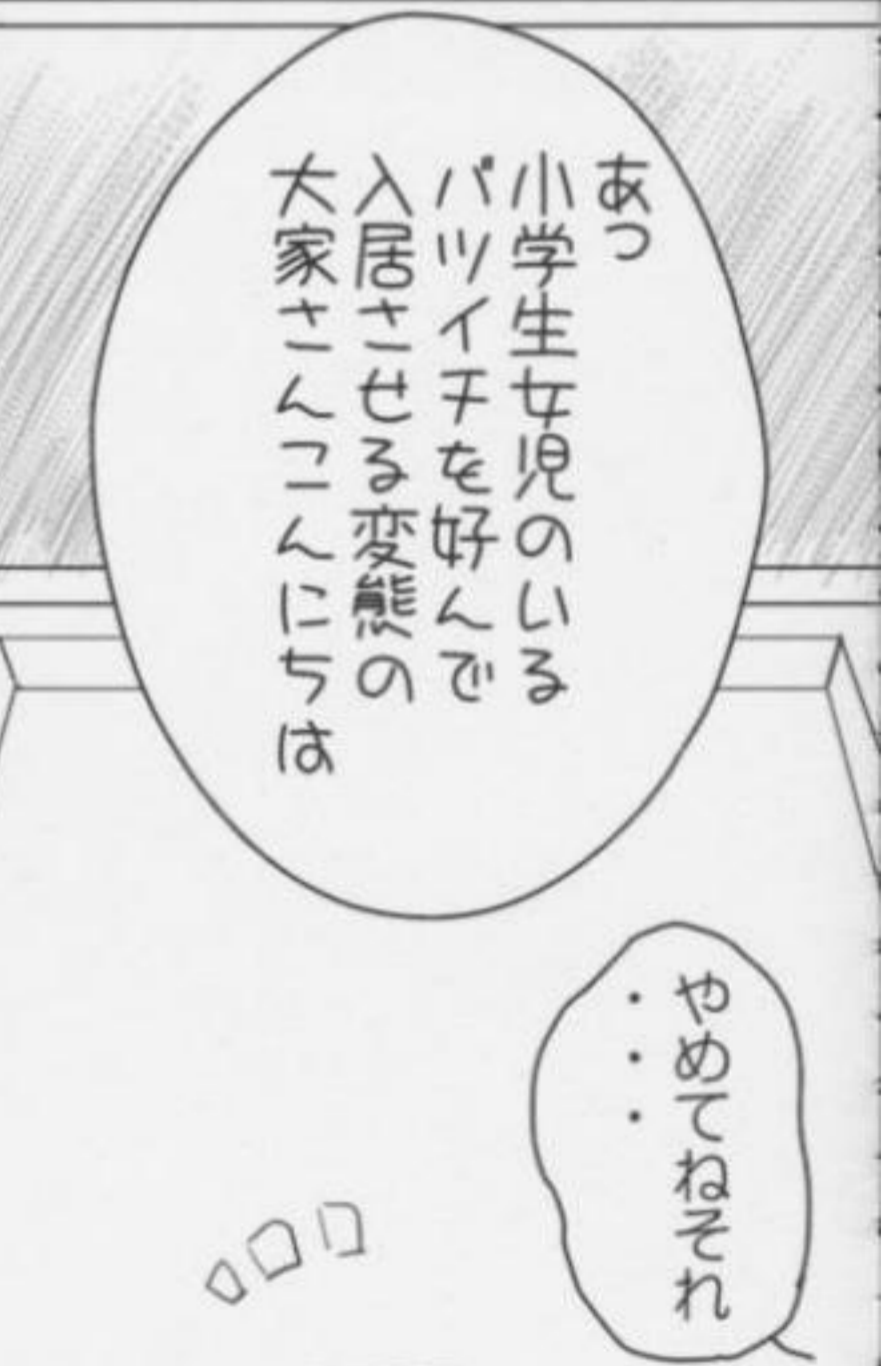 あっ
小学生女児のいる
バツイチを好んで
入居させる変態の
大家さんこんにちは
やめてねそれ
・・・